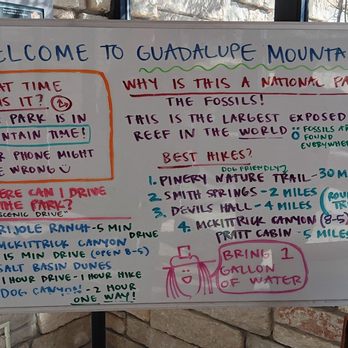 ELCOME TO GUADALUPE MOUNTA
AT TIME
IS IT?
PARK IS IN
NTAIN TIME!
R PHONE MIGHT
E WRONG
ERE CAN I DRIVE
THE PARK?
SCENIC DRIVE"
RIJOLE RANCH - 5 MIN
DRIVE
MCKITTRICK CANYON
15 MIN DRIVE (OPEN 8-5)
SALT BASIN DUNES
1 HOUR DRIVE - 1 HOUR HIKE
DOG CANYON - 2 HOUR
ONE WAY!
WHY IS THIS A NATIONAL PA
THE FOSSILS!
THIS IS THE LARGEST EXPOSED
REEF IN THE WORLD
FOSSILS AR
FOUND
EVERYWHER
BEST HIKES?
DOG FRIENDLY?
1. PINERY NATURE TRAIL - 30 M
2. SMITH STRINGS - 2 MILES
3. DEVILS HALL - 4 MILES
(ROUN
TRI
4. MCKITTRICK CANYON (8-5)
PRATT CABIN - 5 MILES
BRING 1
GALLON
OF WATER